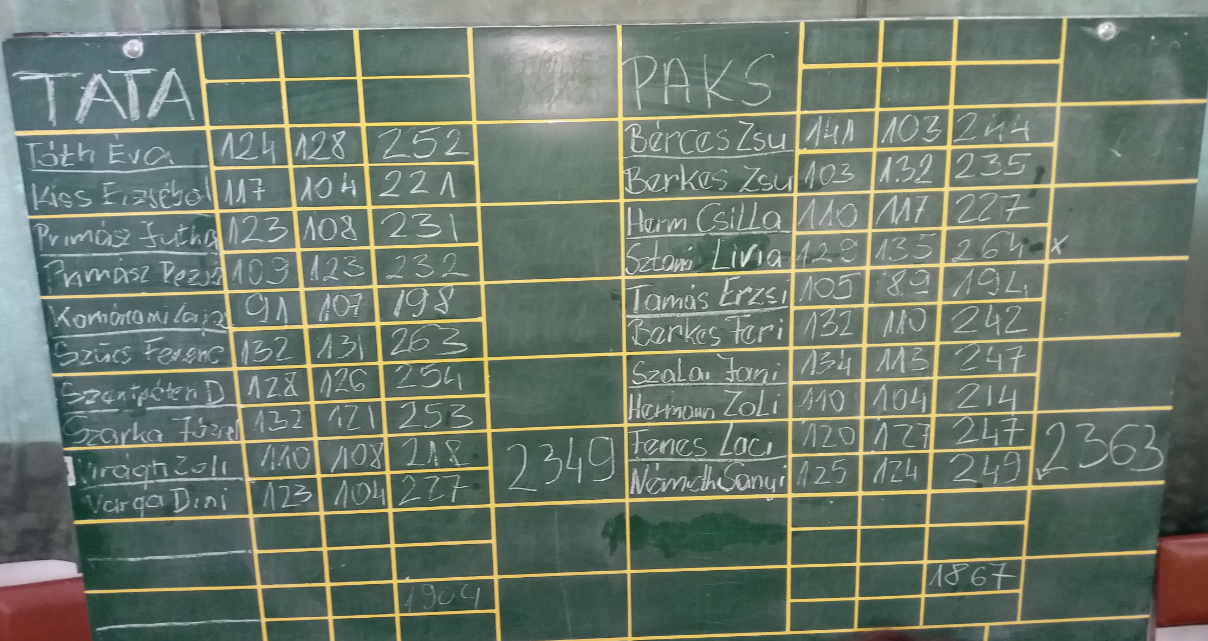 TATA
Tóth Éva 124 128 252
Kiss Erzsébet 117 104 221
Prímász Jutka 123 108 231
Prímász Dezső 109 123 232
Komáromi 91 107 198
Szűcs Ferenc 132 131 263
Szentpéteri D 128 126 254
Szarka József 132 121 253
Virágh Zoli 110 108 218
Varga Dini 123 104 227
2349
1904
PAKS
Bérces Zsu 141 103 244
Berkes Zsu 103 132 235
Herm Csilla 110 117 227
Lívia 129 135 264 x
Tamás Erzsi 105 89 194
Berkes Feri 132 110 242
Szalai Jani 134 113 247
Hermann Zoli 110 104 214
Fenes Laci 120 127 247
Németh Sanyi 125 124 249
2363
1867